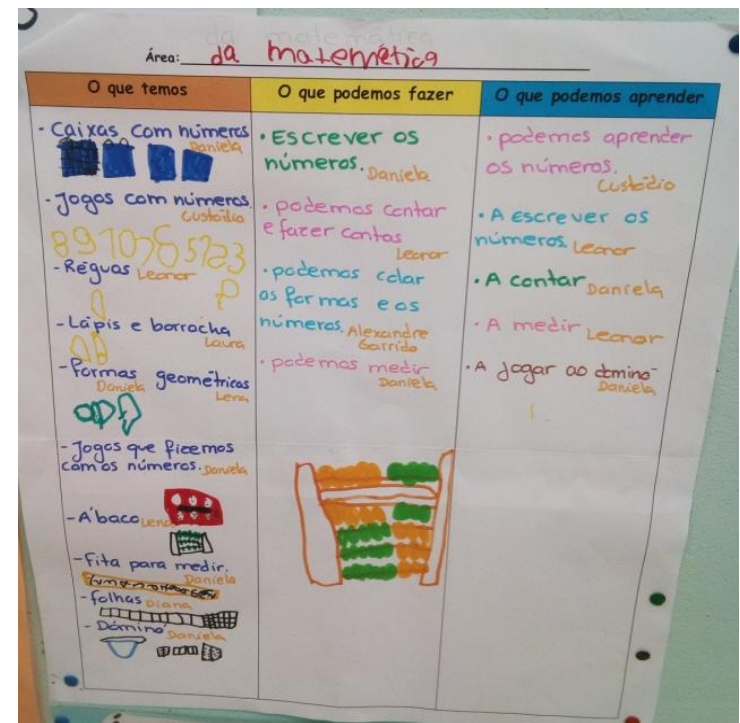 Área: da matemática
O que temos
- Caixas com números
Daniela
- Jogos com números
Custódio
8 9 10 7 6 5 7 2 3
- Réguas Leonor
- Lápis e borracha
Laura
- Formas geométricas
Daniela
Lena
- Jogos que fizemos
com os números. Daniela
- Ábaco Lena
- Fita para medir.
Daniela
- folhas Diana
- Dóminó Daniela
O que podemos fazer
• Escrever os
números. Daniela
• podemos contar
e fazer contas
Leonor
• podemos colar
as formas e os
números. Alexandre
Garrido
• podemos medir
Daniela
O que podemos aprender
• podemos aprender
os números.
Custódio
• A escrever os
números. Leonor
• A contar Daniela
• A medir Leonor
• A jogar ao dominó
Daniela